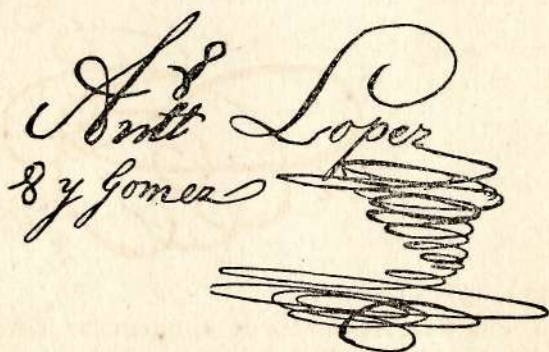 Antt Lopez
y Gomez